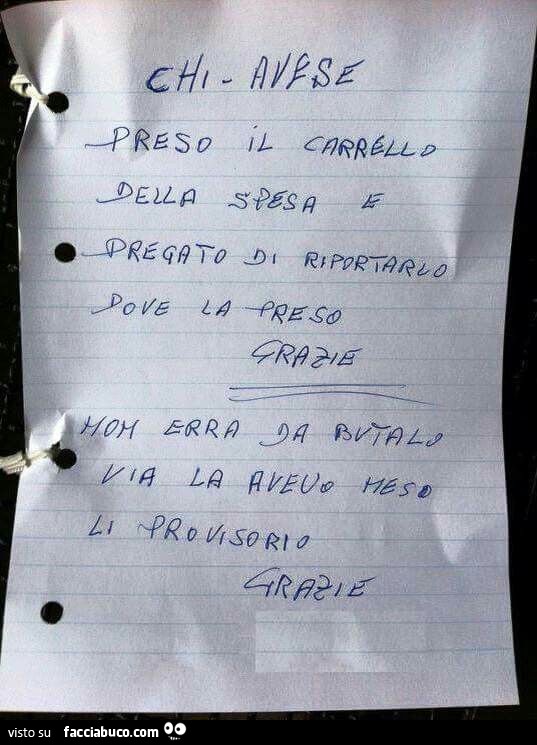 CHI - AVESE
PRESO IL CARRELLO
DELLA SPESA E
PREGATO DI RIPORTARLO
DOVE LA PRESO
GRAZIE
NOM ERRA DA BUTALO
VIA LA AVEVO MESO
LI PROVISORIO
GRAZIE
visto su facciabuco.com